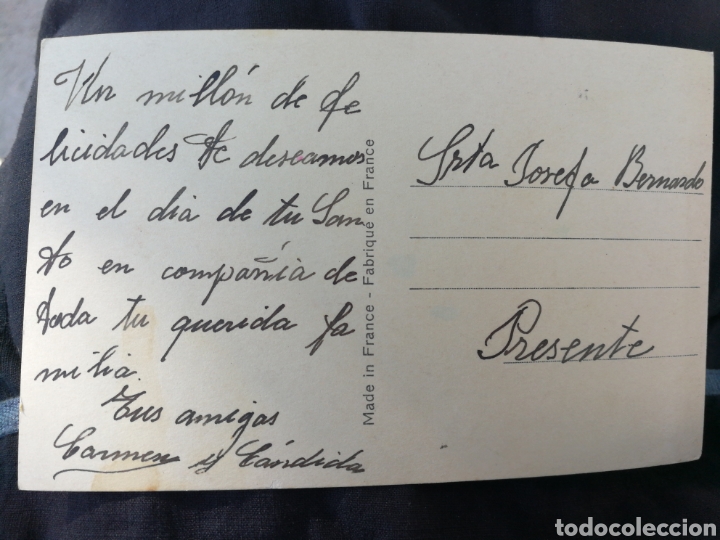 Un millón de fe
licidades te deseamos
en el dia de tu San
to en compañia de
toda tu querida fa
milia.
Tus amigas
Carmen y Cándida
Made in France - Fabriqué en France
Srta Josefa Bernardo
Presente
todocoleccion.net